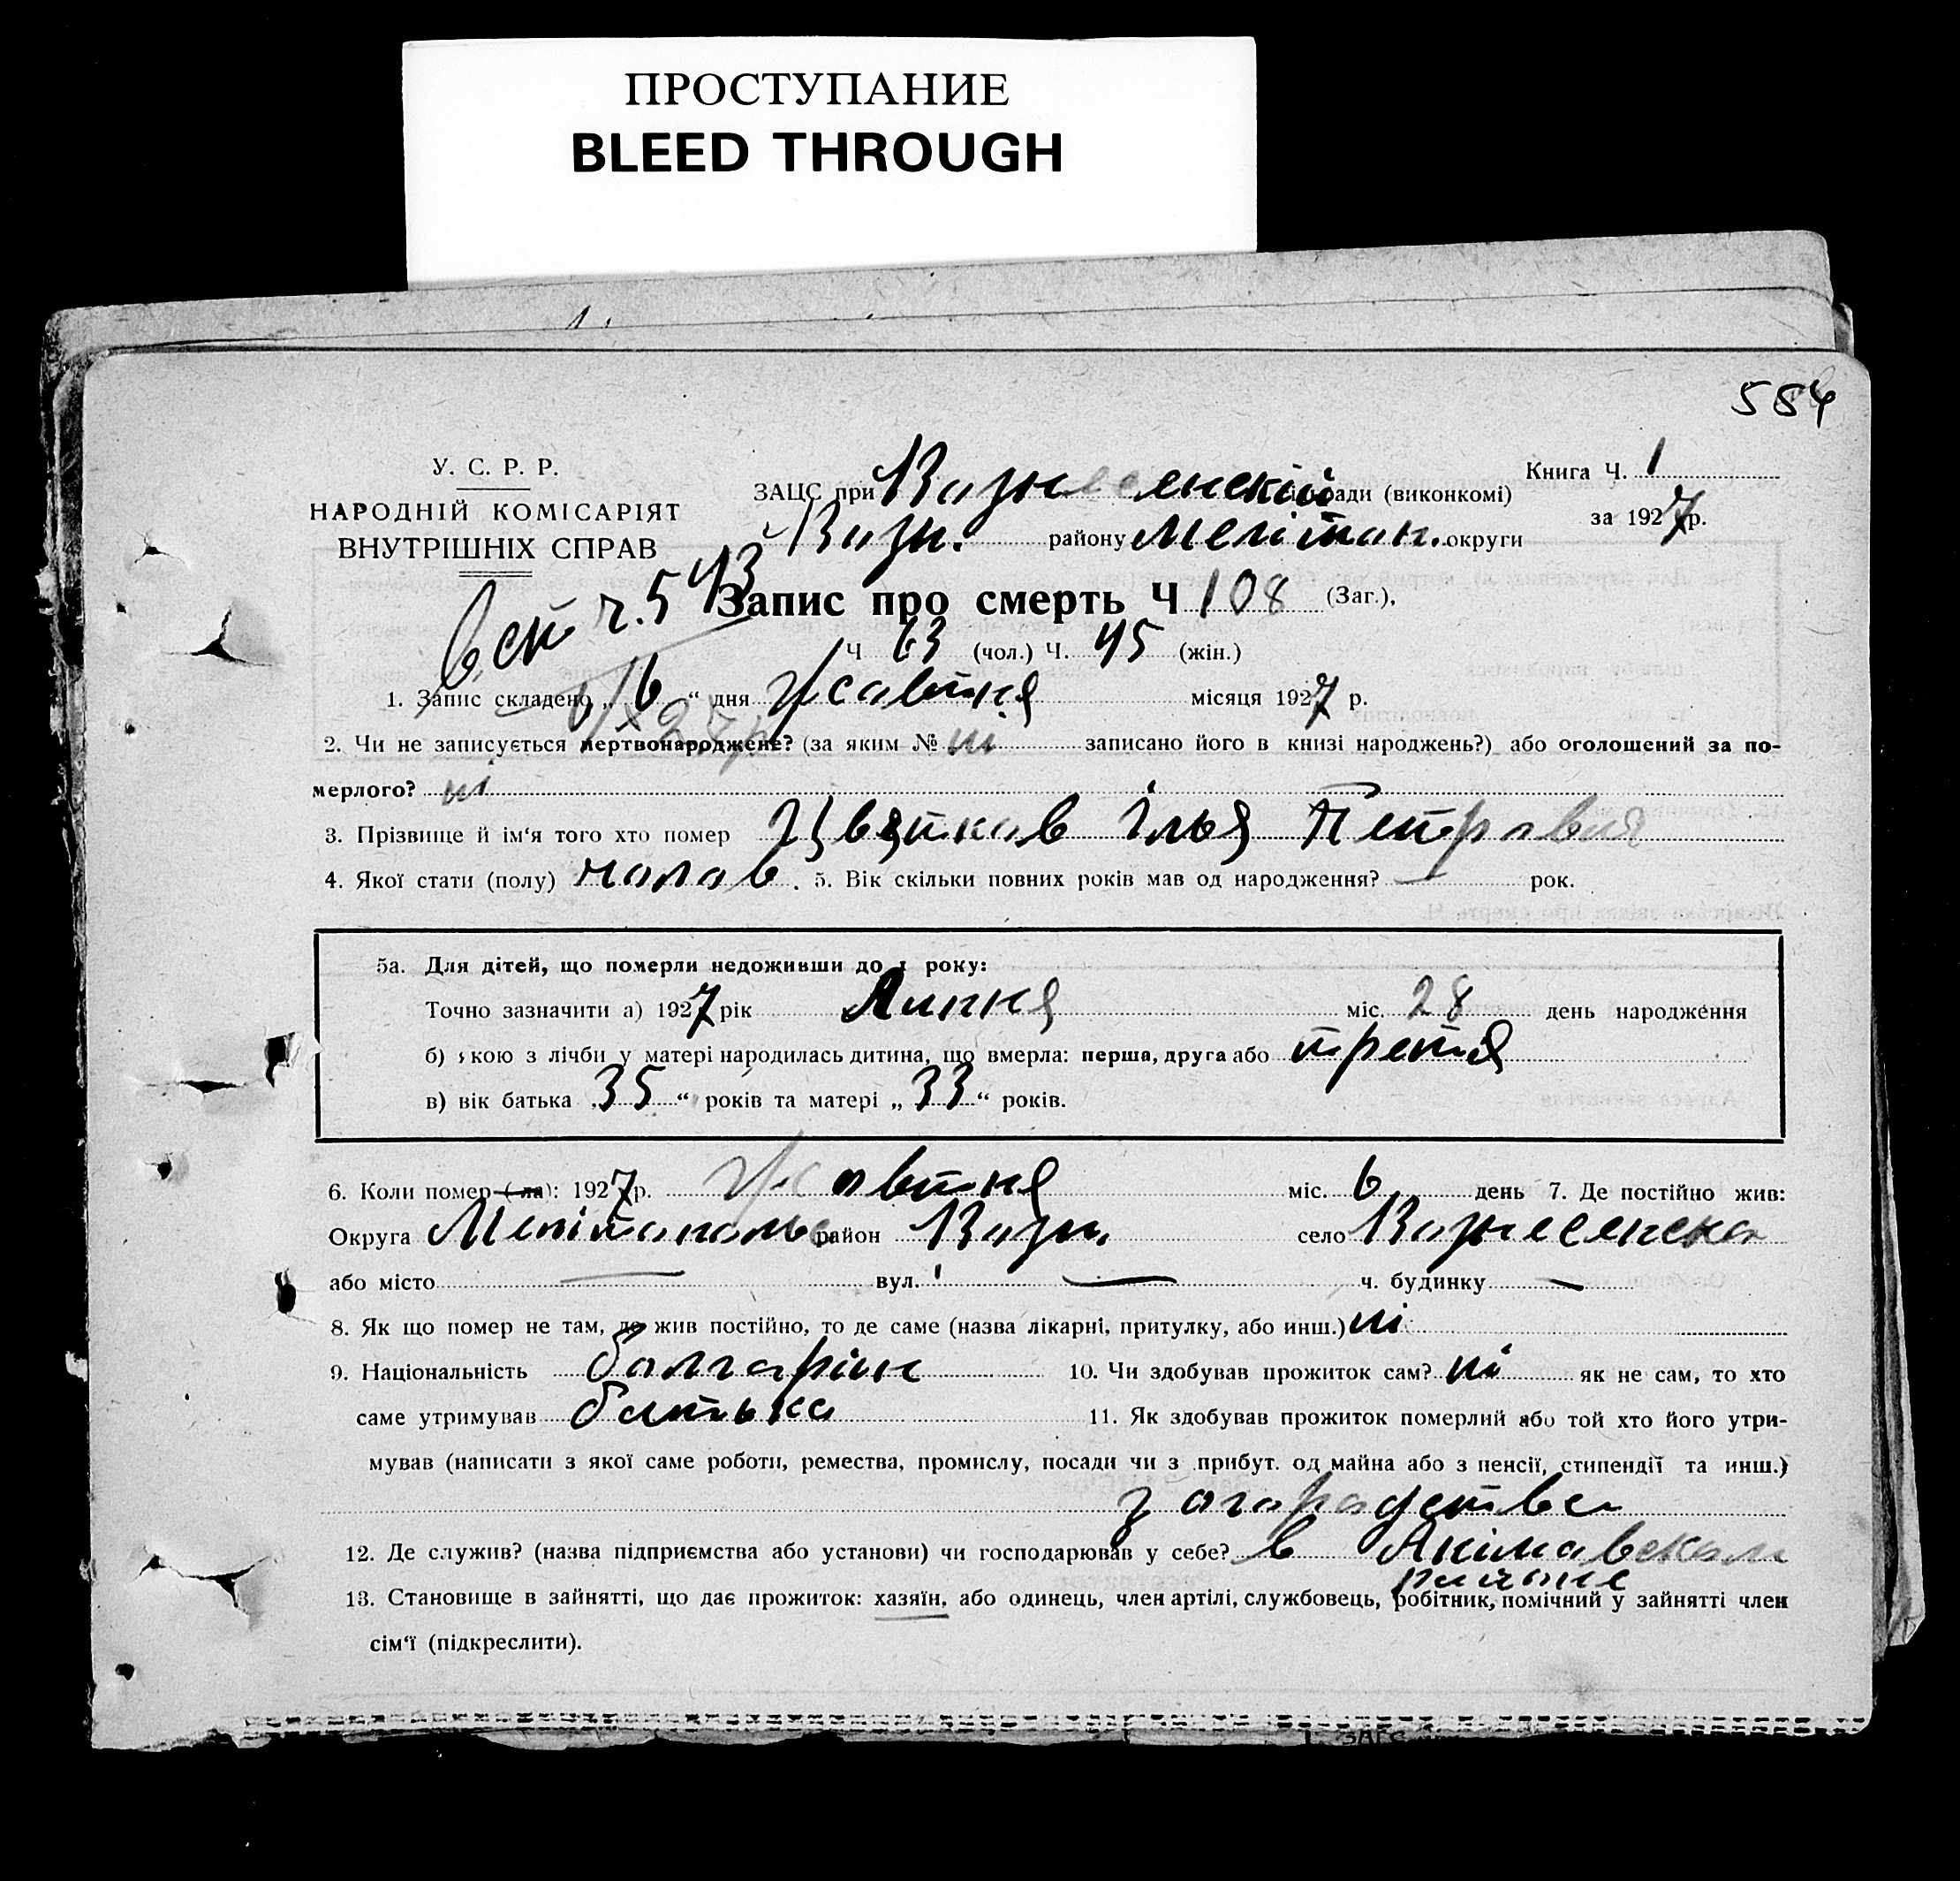 ПРОСТУПАНИЕ
BLEED THROUGH
584
У. С. Р. Р.
НАРОДНІЙ КОМІСАРІЯТ
ВНУТРІШНІХ СПРАВ
ЗАЦС при Вознесенскій ради (виконкомі)
Книга Ч. 1
за 1927 р.
Возн. району Меліτοп. округи
ч. 543
Запис про смерть Ч 108 (Заг.),
Ч 63 (чол.) Ч. 45 (жін.)
1. Запис складено „ 6 “ дня Жовтня місяця 1927 р.
2. Чи не записується мертвонароджене? (за яким № ні записано його в книзі народжень?) або оголошений за по-
мерлого? ні
3. Прізвище й ім‘я того хто помер Цвятков Ілья Петрович
4. Якої стати (полу) чолов. 5. Вік скільки повних років мав од народження? — рок.
5а. Для дітей, що померли недоживши до 1 року:
Точно зазначити а) 1927 рік Липня міс. 28 день народження
б) якою з лічби у матері народилась дитина, що вмерла: перша, друга або третя
в) вік батька 35 “ років та матері „ 33 “ років.
6. Коли помер (-ла): 1927 р. Жовтня міс. 6 день 7. Де постійно жив:
Округа Мелітополь район Возн. село Вознесенска
або місто — вул. — ч. будинку —
8. Як що помер не там, де жив постійно, то де саме (назва лікарні, притулку, або инш.) ні
9. Національність болгарин 10. Чи здобував прожиток сам? ні як не сам, то хто
саме утримував батько 11. Як здобував прожиток померлий або той хто його утри-
мував (написати з якої саме роботи, ремества, промислу, посади чи з прибут. од майна або з пенсії, стипендії та инш.)
з огородства
12. Де служив? (назва підприємства або установи) чи господарював у себе? в Акімовском
районе
13. Становище в зайнятті, що дає прожиток: хазяїн, або одинець, член артілі, службовець, робітник, помічний у зайнятті член
сім‘ї (підкреслити).